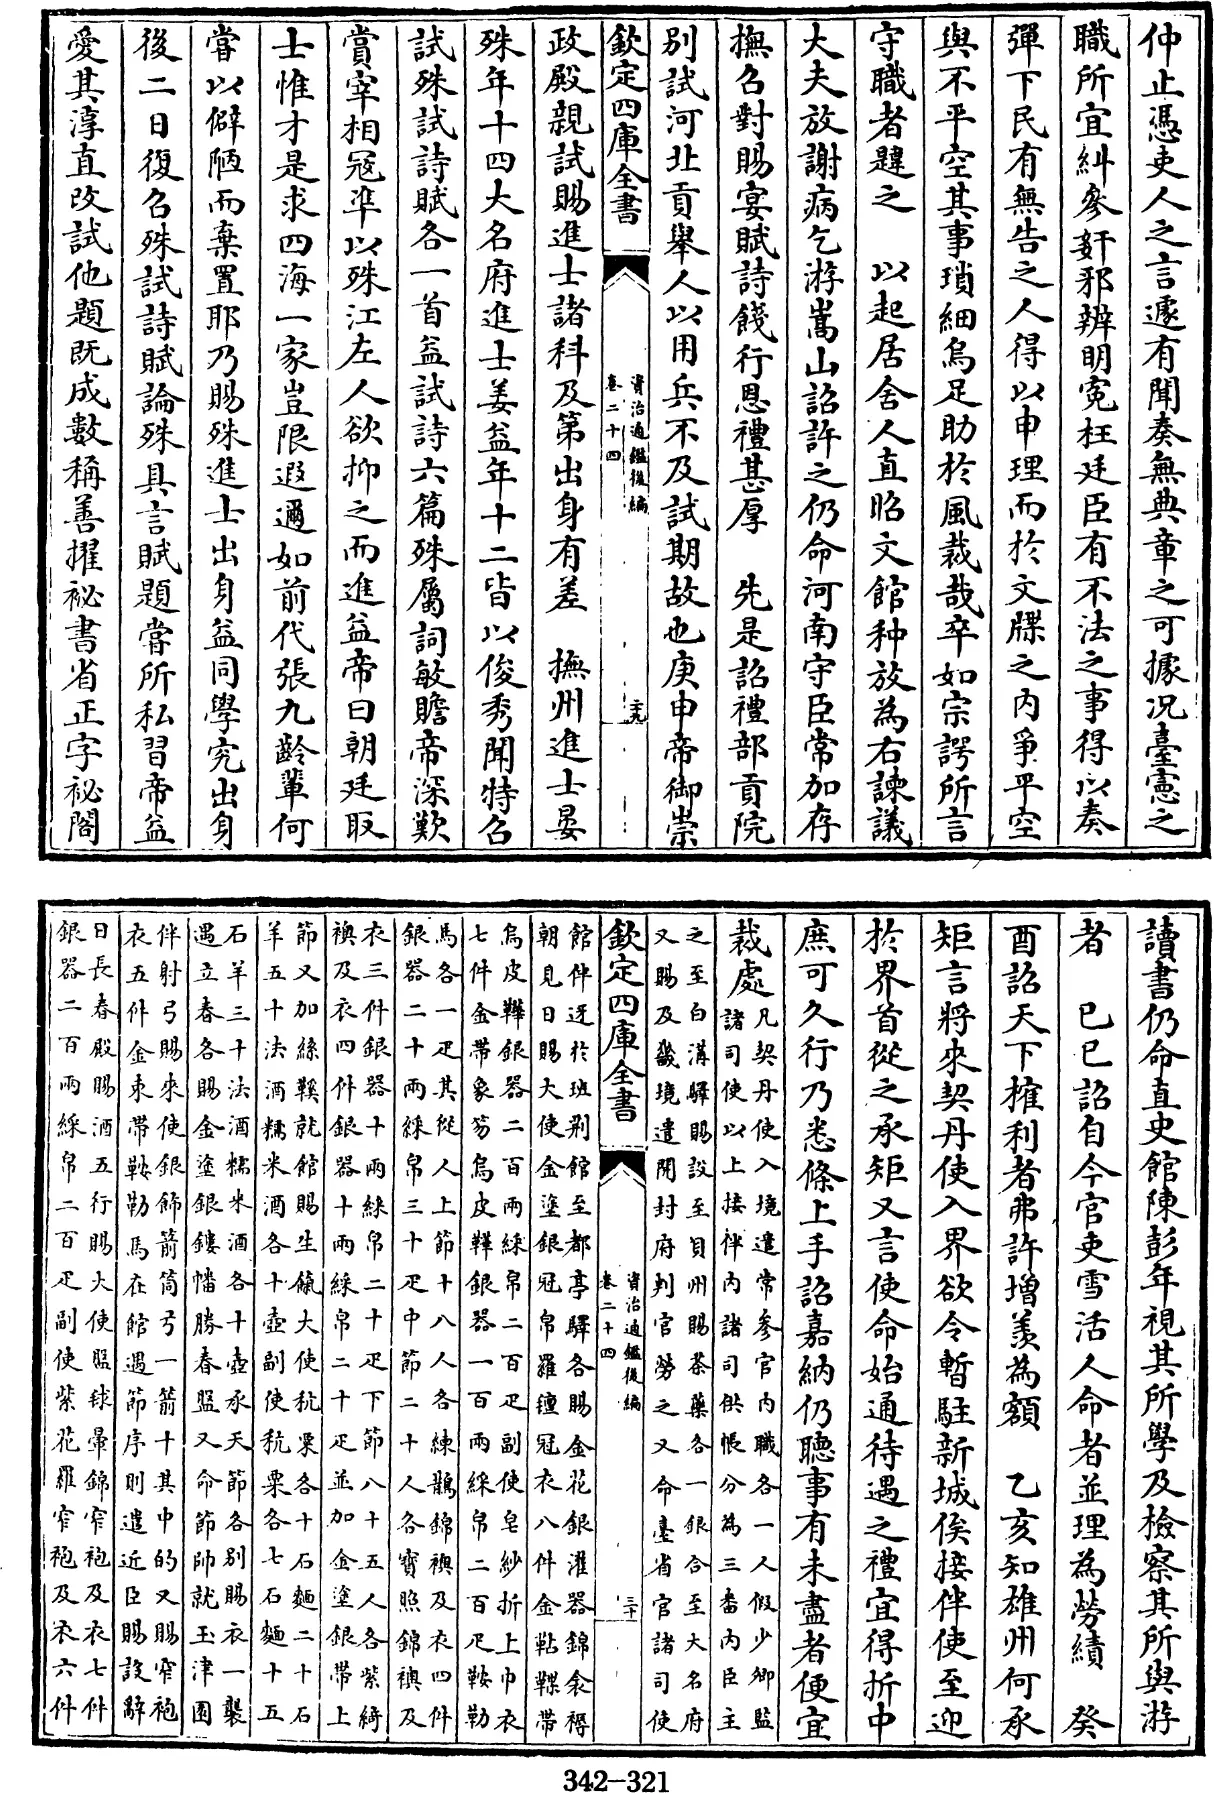 仲止憑吏人之言遽有聞奏無典章之可據况臺憲之
職所宜糾參姧邪辨明寃枉廷臣有不法之事得以奏
彈下民有無告之人得以申理而於文牒之内爭平空
與不平空其事瑣細烏足助於風裁哉卒如宗諤所言
守職者韙之 以起居舍人直昭文館种放為右諫議
大夫放謝病乞游嵩山詔許之仍命河南守臣常加存
撫召對賜宴賦詩餞行恩禮甚厚 先是詔禮部貢院
别試河北貢舉人以用兵不及試期故也庚申帝御崇
欽定四庫全書
資治通鑑後編
卷二十四
二九
政殿親試賜進士諸科及第出身有差 撫州進士晏
殊年十四大名府進士姜益年十二皆以俊秀聞特召
試殊試詩賦各一首益試詩六篇殊屬詞敏贍帝深歎
賞宰相寇準以殊江左人欲抑之而進益帝曰朝廷取
士惟才是求四海一家豈限遐邇如前代張九齡輩何
甞以僻陋而棄置耶乃賜殊進士出身益同學究出身
後二日復召殊試詩賦論殊具言賦題甞所私習帝益
愛其淳直改試他題既成數稱善擢秘書省正字秘閣
讀書仍命直史館陳彭年視其所學及檢察其所與游
者 己巳詔自今官吏雪活人命者並理為勞績 癸
酉詔天下榷利者弗許增羡為額 乙亥知雄州何承
矩言將來契丹使入界欲令暫駐新城俟接伴使至迎
於界首從之承矩又言使命始通待遇之禮宜得折中
庶可久行乃悉條上手詔嘉納仍聽事有未盡者便宜
裁處
凡契丹使入境遣常參官内職各一人假少卿監
諸司使以上接伴内諸司供帳分為三番内臣主
之至白溝驛賜設至貝州賜茶藥各一銀合至大名府
又賜及畿境遣開封府判官勞之又命臺省官諸司使
欽定四庫全書
資治通鑑後編
卷二十四
三十
館伴迓於班荆館至都亭驛各賜金花銀灌器錦衾褥
朝見日賜大使金塗銀冠帛羅氊冠衣八件金䩞鞢帶
烏皮鞾銀器二百兩綵帛二百疋副使皂紗折上巾衣
七件金帶象笏烏皮鞾銀器一百兩綵帛二百疋鞍勒
馬各一疋其從人上節十八人各練鵲錦襖及衣四件
銀器二十兩綵帛三十疋中節二十人各寳照錦襖及
衣三件銀器十兩綵帛二十疋下節八十五人各紫綺
襖及衣四件銀器十兩綵帛二十疋並加金塗銀帶上
節又加絲鞵就館賜生餼大使秔粟各十石麵二十石
羊五十法酒糯米酒各十壺副使秔粟各七石麵十五
石羊三十法酒糯米酒各十壺承天節各别賜衣一襲
遇立春各賜金塗銀鏤幡勝春盤又命節帥就玉津園
伴射弓賜來使銀飾箭筒弓一箭十其中的又賜窄袍
衣五件金束帶鞍勒馬在館遇節序則遣近臣賜設辭
日長春殿賜酒五行賜大使盤毬暈錦窄袍及衣七件
銀器二百兩綵帛二百疋副使紫花羅窄袍及衣六件
342-321